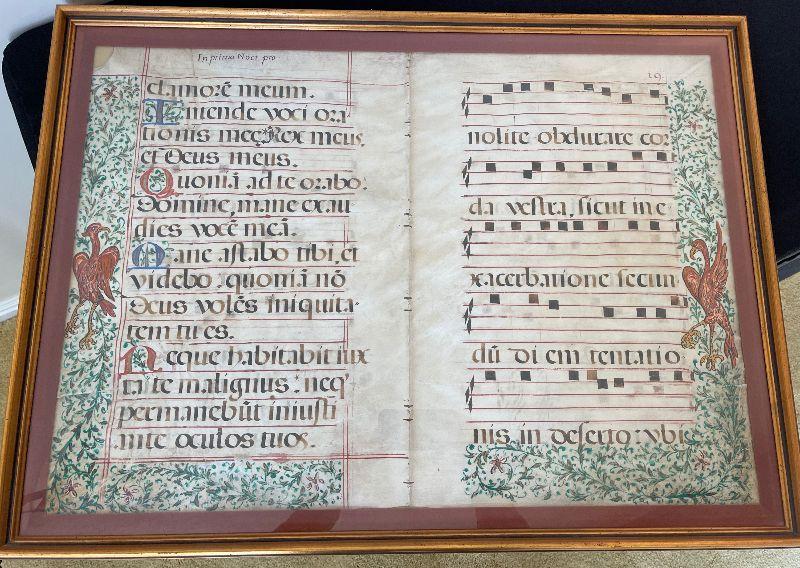 In primo Noct. pro
clamorē meum.
Intende voci ora
tionis meę, Rex meus,
et Deus meus.
Quoniā ad te orabo:
Domine, mane exau
dies vocē meā.
Mane astabo tibi, et
videbo: quoniā nō
Deus volēs iniquita-
tem tu es.
Neque habitabit iux
ta te malignus: neq'
permanebūt iniusti
ante oculos tuos.
19.
nolite obdurare cor
da vestra, sicut in e
xacerbatione secun
dū di em tentatio
nis in deserto: vbi